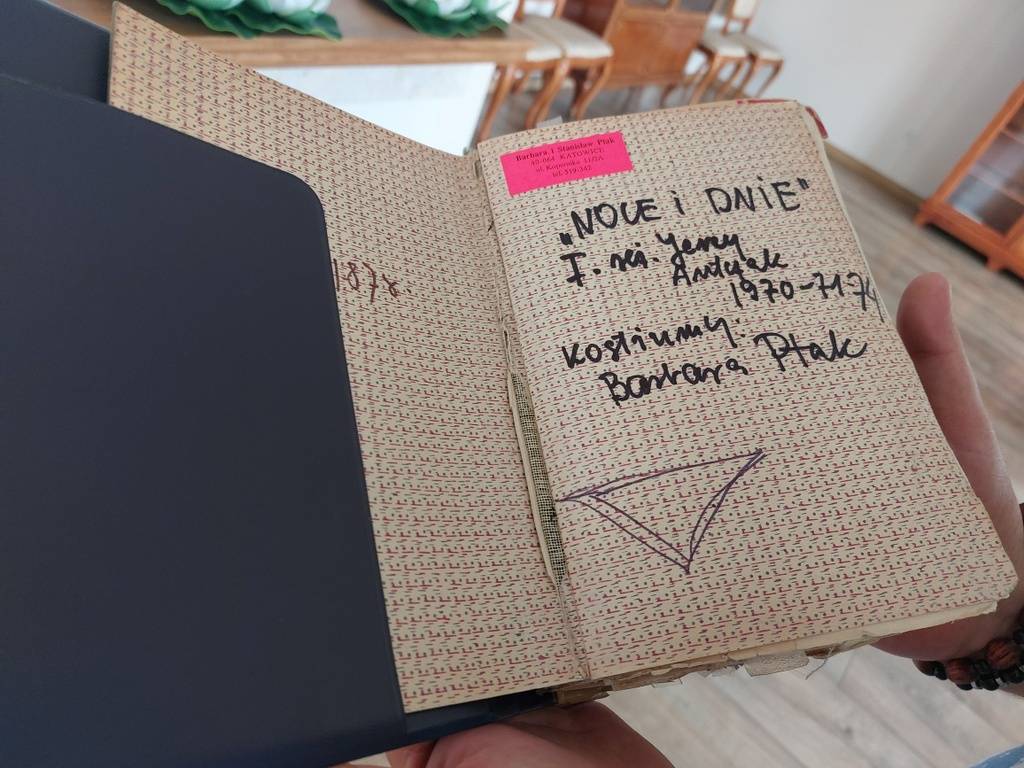 187r.
Barbara i Stanisław Ptak
40-064 KATOWICE
ul. Kopernika 11/2A
tel. 519-342
„NOCE i DNIE"
Jerzy
Antczak
1970-71 74
Kostiumy
Barbara Ptak